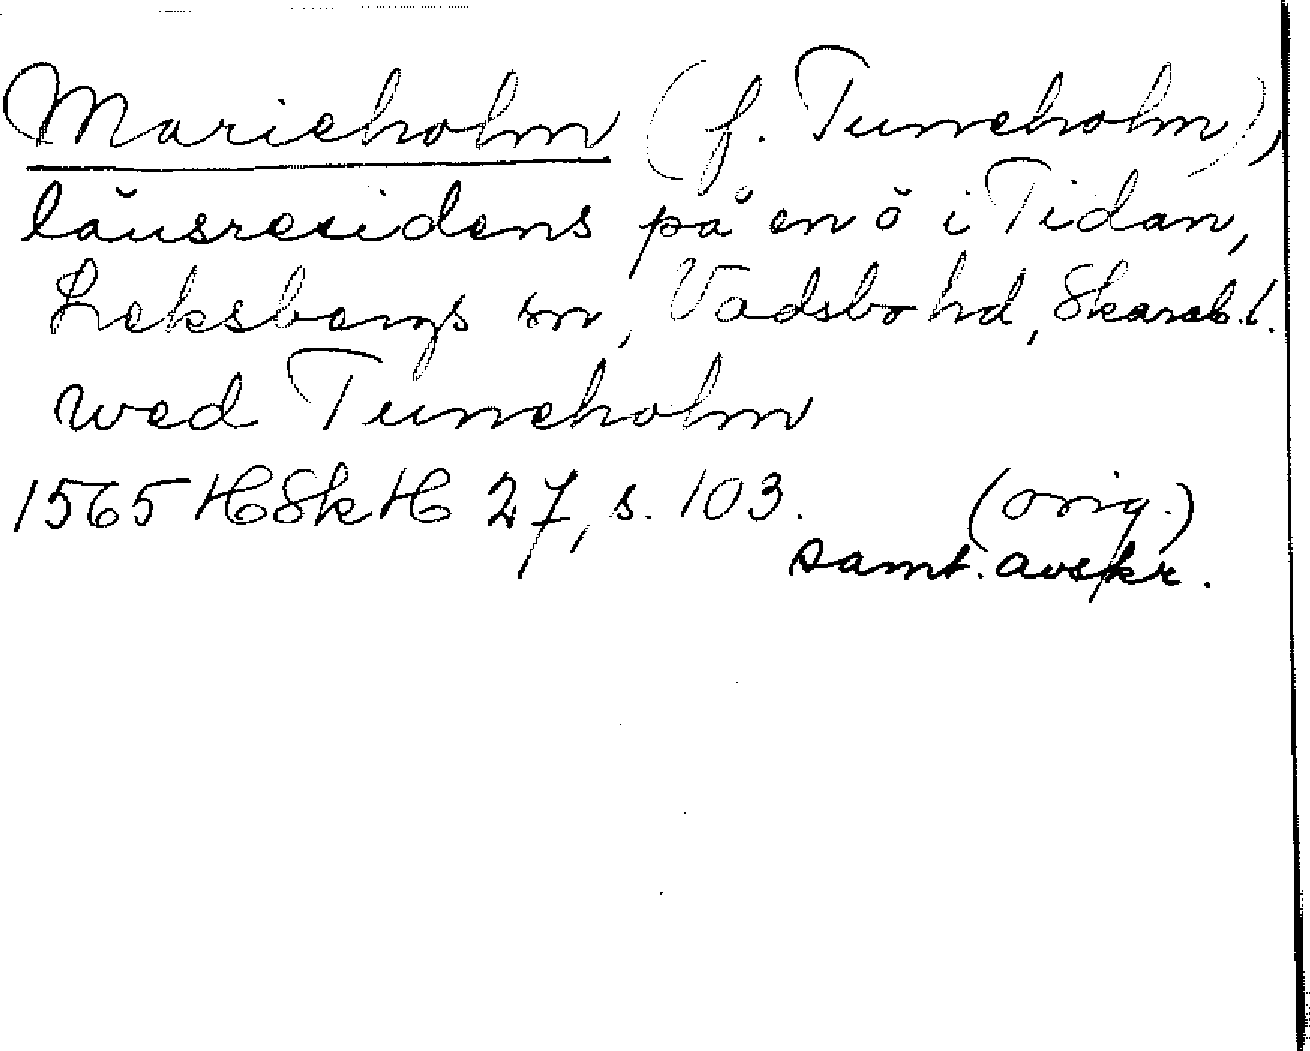 Marieholm (f. Tuneholm),
länsresidens på en ö i Tidan,
Leksbergs sn, Vadsbo hd, Skarab.l.
wed Tuneholm
1565 HSkH 27, s. 103. (orig.)
samt. avskr.